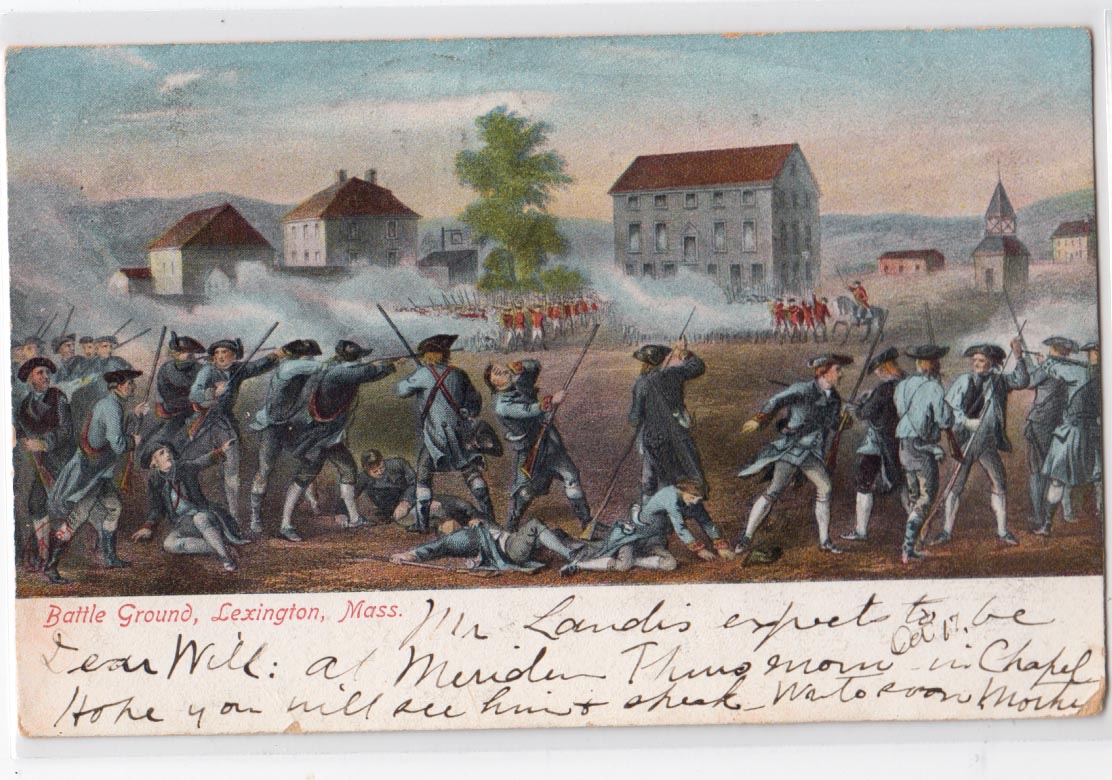 Battle Ground, Lexington, Mass.
Mr Landis expects to be
Oct 17.
Dear Will: at Meriden Thurs morn in Chapel
Hope you will see him & speak. Write soon